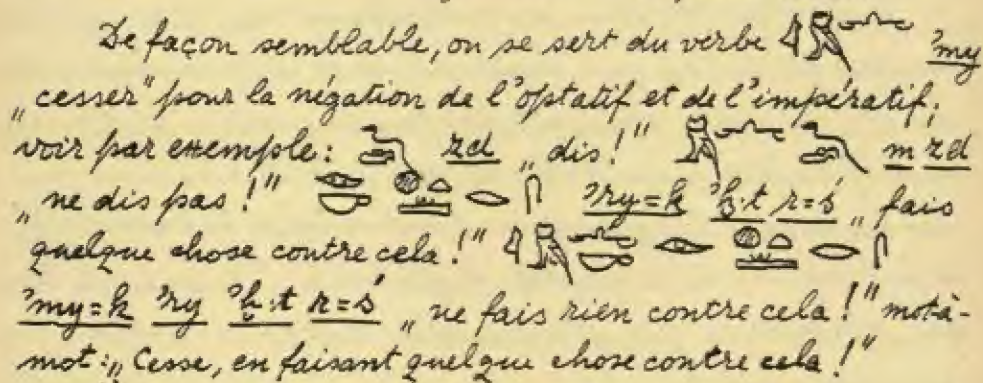 De façon semblable, on se sert du verbe ʾmy
„cesser" pour la négation de l'optatif et de l'impératif;
voir par exemple: zd „dis!" m zd
„ne dis pas!" ʾry=k ʾḫ·t r=ś „fais
quelque chose contre cela!"
ʾmy=k ʾry ʾḫ·t r=ś „ne fais rien contre cela!" mot-à-
mot: „Cesse, en faisant quelque chose contre cela!"